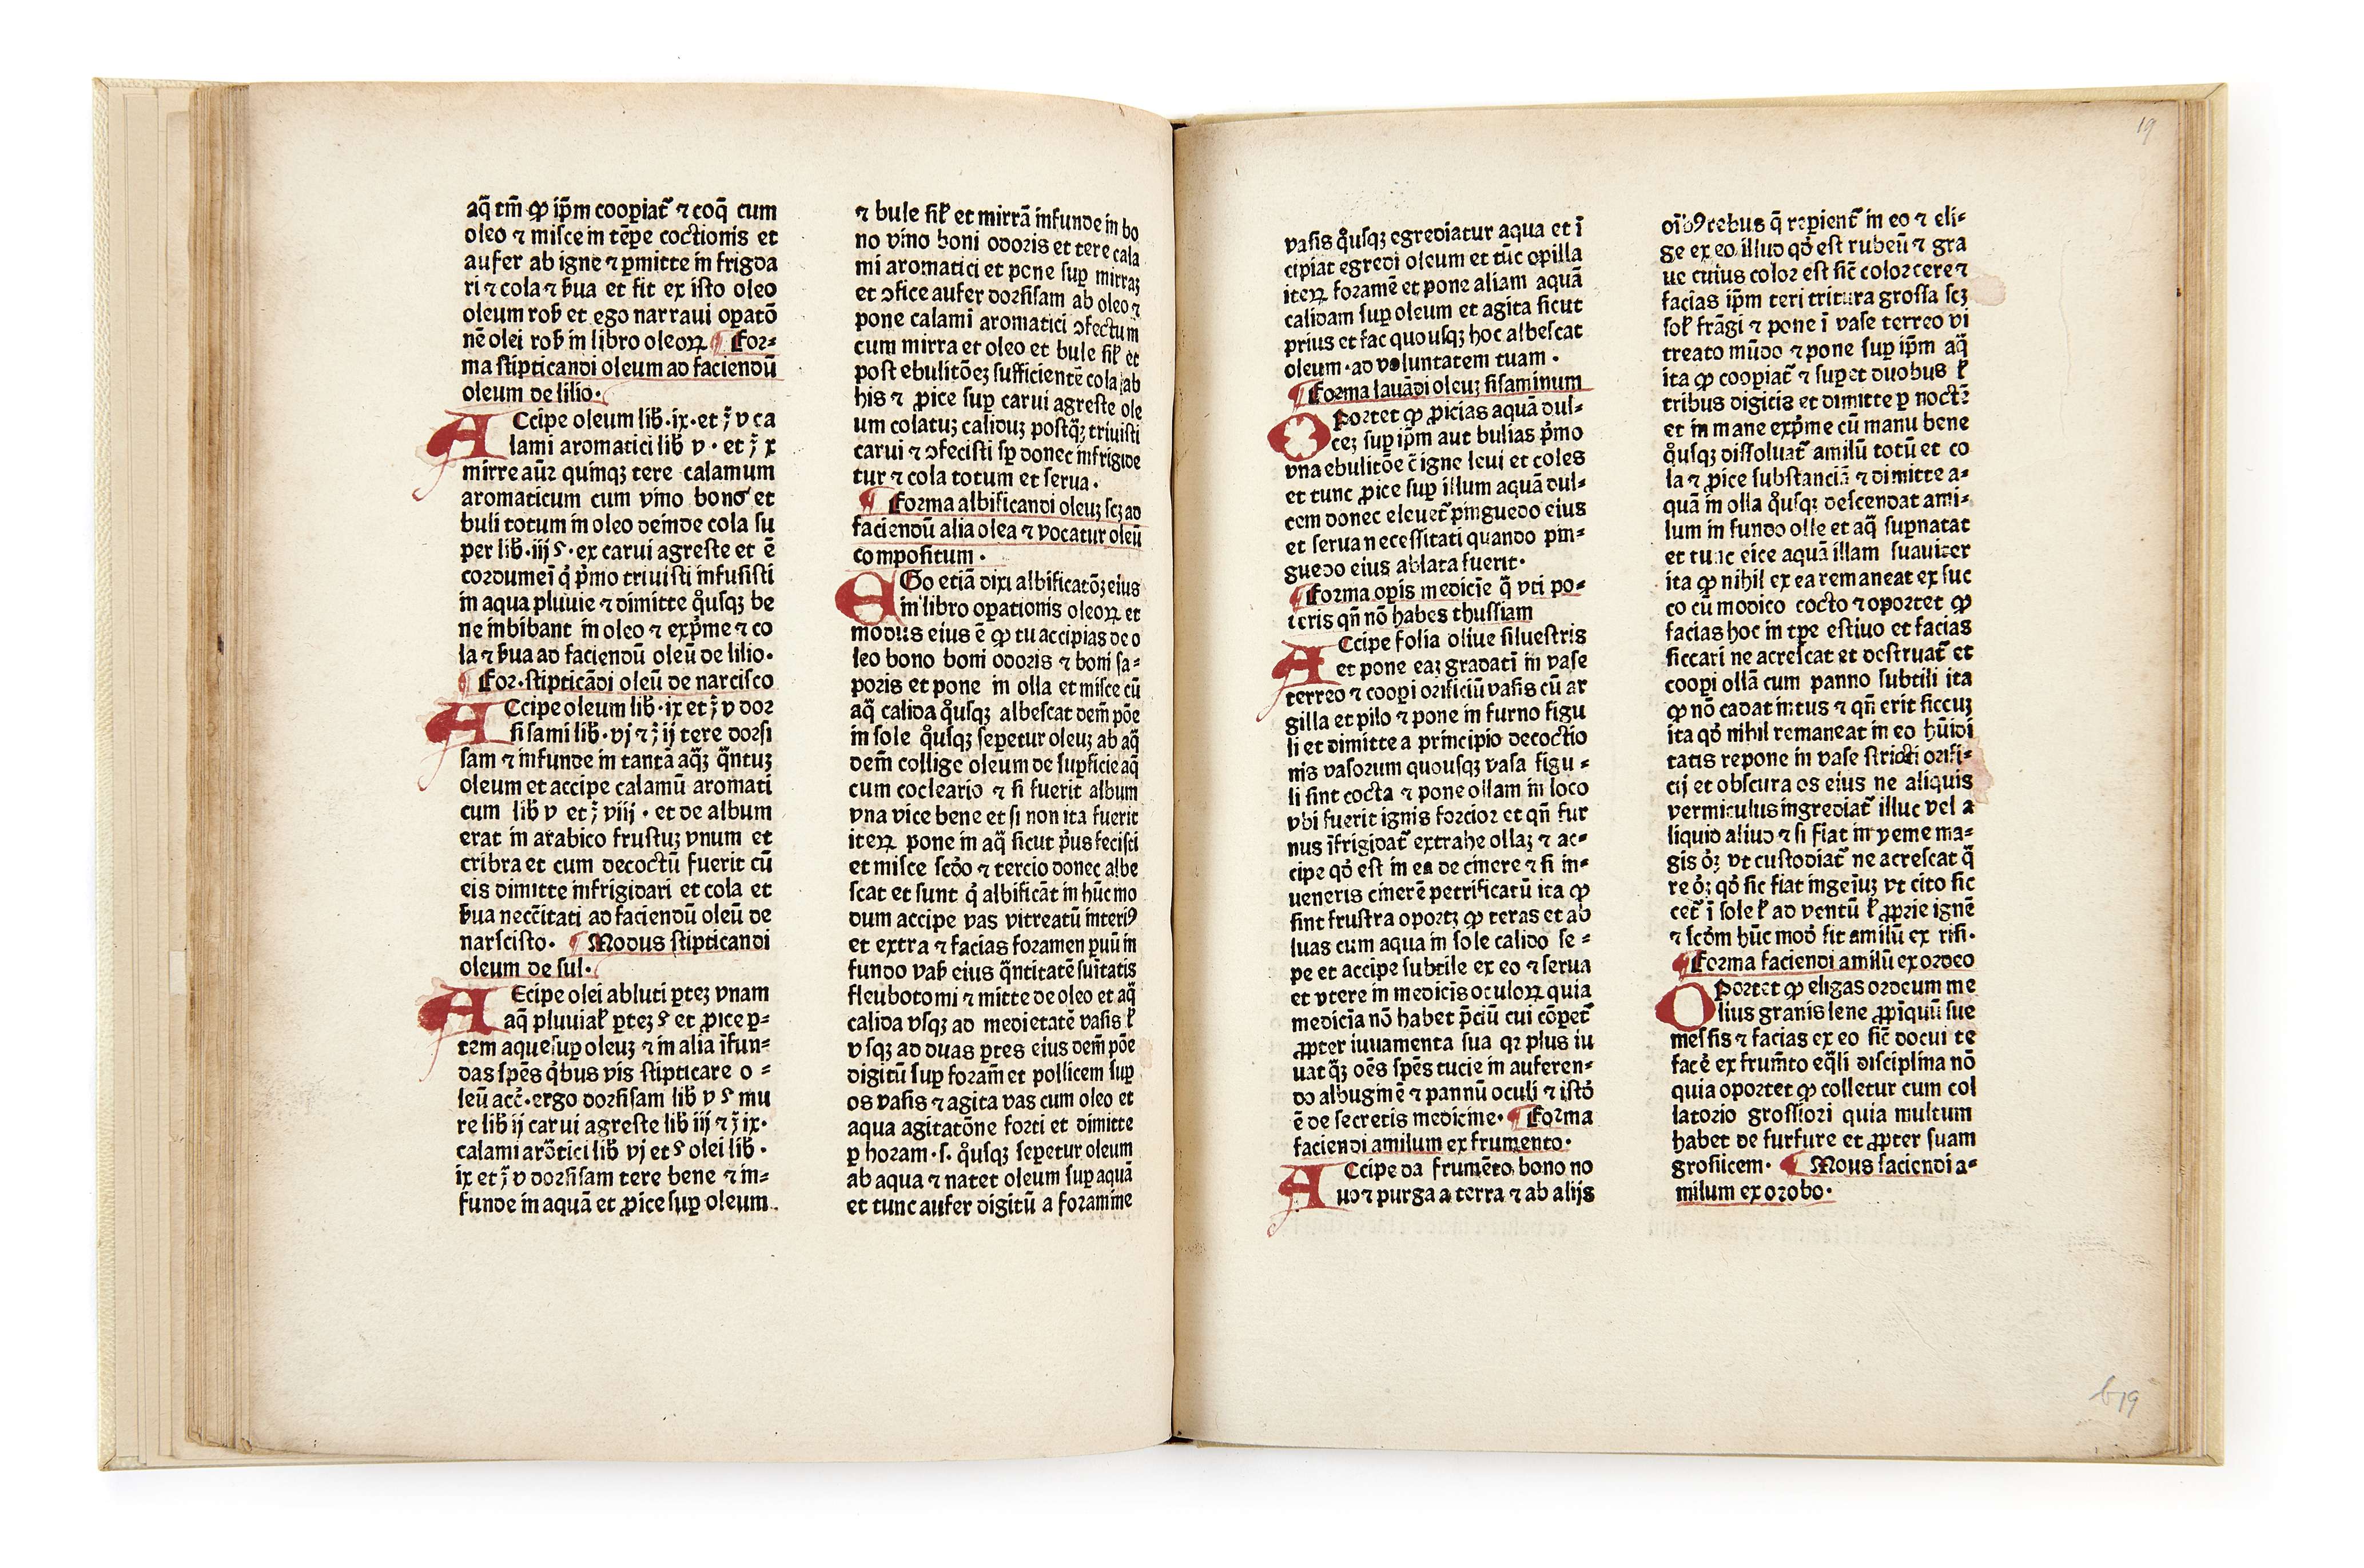 aq̄ tm̄ ꝙ ip̄m cooꝑiat᷑ ⁊ coq̄ cum
oleo ⁊ miſce in tēꝑe coctionis et
aufer ab igne ⁊ ꝑmitte in frigda
ri ⁊ cola ⁊ ẜua et fit ex iſto oleo
oleum roẜ et ego narraui oꝑatō
nē olei roẜ in libro oleoꝝ ¶ For⸗
ma ſtipticandi oleum ad faciendū
oleum de lilio.
ACcipe oleum lib̄.ix.et ℥ v ca
lami aromatici lib̄ v . et ℥ x
mirre aur̄ quinqꝫ tere calamum
aromaticum cum vino bono et
buli totum in oleo deinde cola ſu
per lib̄.iij ẜ. ex carui agreſte et ē
cordumeī q̇ pͥmo triuiſti infuſiſti
in aqua pluuie ⁊ dimitte q̊uſqꝫ be
ne inbibant in oleo ⁊ expͥme ⁊ co
la ⁊ ẜua ad faciendū oleū de lilio.
¶ For.ſtipticādi oleū de narciſco
ACcipe oleum lib̄.ix et ℥ v dor
ſiſami lib̄.vj ⁊ ℥ ij tere dorſi
ſam ⁊ infunde in tanta aq̄ꝫ q̄ntuꝫ
oleum et accipe calamū aromati
cum lib̄ v et ℥ viij . et de album
erat in arabico fruſtuꝫ vnum et
cribra et cum decoctū fuerit cū
eis dimitte infrigidari et cola et
ẜua necc̄itati ad faciendū oleū de
narſciſto. ¶ Modus ſtipticandi
oleum de ſul.
AEcipe olei abluti ꝑteꝫ vnam
aq̄ pluuiaꝉ ꝑteꝫ ẜ et ꝓice ꝑ⸗
tem aque ſuꝑ oleuꝫ ⁊ in alia īfun⸗
das ſpēs q̇bus vis ſtipticare o ⸗
leū acc̄.ergo dorſiſam lib̄ v ẜ mu
re lib̄ ij carui agreſte lib̄ iij ⁊ ℥ ix.
calami arōtici lib̄ vj et ẜ olei lib̄ .
ix et ℥ v dorſiſam tere bene ⁊ in⸗
funde in aquā et ꝓice ſuꝑ oleum.
⁊ bule ſiꝉ et mirrā infunde in bo
no vino boni odoris et tere cala
mi aromatici et pone ſuꝑ mirraꝫ
et ↄfice aufer dorſiſam ab oleo ⁊
pone calami aromatici ↄfectum
cum mirra et oleo et bule ſiꝉ et
poſt ebulitōeꝫ ſufficientē cola ab
his ⁊ ꝓice ſuꝑ carui agreſte ole
um colatuꝫ caliduꝫ poſtq̄ꝫ triuiſti
carui ⁊ ↄfeciſti ſꝑ donec infrigide
tur ⁊ cola totum et ſerua.
¶ Forma albificandi oleuꝫ ſcꝫ ad
faciendū alia olea ⁊ vocatur oleū
compoſitum .
EGo etiā dixi albificatōꝫ eius
in libro oꝑationis oleoꝝ et
modus eius ē ꝙ tu accipias de o
leo bono boni odoris ⁊ boni ſa⸗
poris et pone in olla et miſce cū
aq̄ calida q̊uſqꝫ albeſcat dem̄ pōe
in ſole q̊uſqꝫ ſeꝑetur oleuꝫ ab aq̄
dem̄ collige oleum de ſuꝑficie aq̄
cum cocleario ⁊ ſi fuerit album
vna vice bene et ſi non ita fuerit
iteꝝ pone in aq̄ ſicut pͥus feciſti
et miſce ſcd̄o ⁊ tercio donec albe
ſcat et ſunt q̇ albificāt in hūc mo
dum accipe vas vitreatū interiꝰ
et extra ⁊ facias foramen ꝑuū in
fundo vaſ̄ eius q̄ntitatē ſuītatis
fleubotomi ⁊ mitte de oleo et aq̄
calida vſqꝫ ad medietatē vaſis ꝉ
vſqꝫ ad duas ꝑtes eius dem̄ pōe
digitū ſuꝑ foram̄ et pollicem ſuꝑ
os vaſis ⁊ agita vas cum oleo et
aqua agitatōne forti et dimitte
ꝑ horam.ſ. q̊uſqꝫ ſeꝑetur oleum
ab aqua ⁊ natet oleum ſuꝑ aquā
et tunc aufer digitū a foramine
19
vaſis q̊uſqꝫ egrediatur aqua et ī
cipiat egredi oleum et tūc opilla
iteꝝ foramē et pone aliam aquā
calidam ſuꝑ oleum et agita ſicut
prius et fac quouſqꝫ hoc albeſcat
oleum.ad voluntatem tuam .
¶ Forma lauādi oleuꝫ ſiſaminum
OPortet ꝙ ꝓicias aquā dul⸗
ceꝫ ſuꝑ ip̄m aut bulias pͥmo
vna ebulitōe c̄ igne leui et coles
et tunc ꝓice ſuꝑ illum aquā dul⸗
cem donec eleuet᷑ pinguedo eius
et ſerua neceſſitati quando pin⸗
guedo eius ablata fuerit.
¶ Forma oꝑis medicīe q̄ vti po⸗
teris qn̄ nō habes thuſſiam
ACcipe folia oliue ſilueſtris
et pone eaꝫ gradatī in vaſe
terreo ⁊ cooꝑi orificiū vaſis cū ar
gilla et pilo ⁊ pone in furno figu
li et dimitte a principio decoctio
nis vaſorum quouſqꝫ vaſa figu ⸗
li ſint cocta ⁊ pone ollam in loco
vbi fuerit ignis forcior et qn̄ fur
nus īfrigidat᷑ extrahe ollaꝫ ⁊ ac⸗
cipe qd̄ eſt in ea de cinere ⁊ ſi in⸗
ueneris cinerē petrificatū ita ꝙ
ſint fruſtra oportꝫ ꝙ teras et ab
luas cum aqua in ſole calido ſe ⸗
pe et accipe ſubtile ex eo ⁊ ſerua
et vtere in medicis oculoꝝ quia
medicīa nō habet p̄ciū cui cōpet᷑
ꝓpter iuuamenta ſua qꝛ plus iu
uat q̄ꝫ oēs ſpēs tucie in auferen⸗
do albuginē ⁊ pannū oculi ⁊ iſtd̄
ē de ſecretis medicine. ¶ Forma
faciendi amilum ex frumento.
ACcipe da frumēto bono no
uo ⁊ purga a terra ⁊ ab alijs
oīb9 rebus q̄ reꝑient᷑ in eo ⁊ eli⸗
ge ex eo illud qd̄ eſt rubeū ⁊ gra
ue cuius color eſt ſic̄ color cere ⁊
facias ip̄m teri tritura groſſa ſcꝫ
ſoꝉ frāgi ⁊ pone ī vaſe terreo vi
treato mūdo ⁊ pone ſuꝑ ip̄m aq̄
ita ꝙ cooꝑiat᷑ ⁊ ſuꝑet duobus ꝉ
tribus digitis et dimitte ꝑ noctꝫ
et in mane expͥme cū manu bene
q̊uſqꝫ diſſoluat᷑ amilū totū et co
la ⁊ ꝓice ſubſtanciā ⁊ dimitte a⸗
quā in olla q̊uſqꝫ deſcendat ami⸗
lum in fundo olle et aq̄ ſuꝑnatat
et tunc eice aquā illam ſuauiter
ita ꝙ nihil ex ea remaneat ex ſuc
co cū modico cocto ⁊ oportet ꝙ
facias hoc in tꝑe eſtiuo et facias
ſiccari ne acreſcat et deſtruat᷑ et
cooꝑi ollā cum panno ſubtili ita
ꝙ nō cadat intus ⁊ qn̄ erit ſiccuꝫ
ita qd̄ nihil remaneat in eo hūidi
tatis repone in vaſe ſtricti orifi⸗
cij et obſcura os eius ne aliquis
vermiculus ingrediat᷑ illuc vel a
liquid aliud ⁊ ſi fiat in yeme ma⸗
gis oꝫ vt cuſtodiat᷑ ne acreſcat q̄
re oꝫ qd̄ ſic fiat ingeīuꝫ vt cito ſic
cet᷑ ī ſole ꝉ ad ventū ꝉ ꝓprie ignē
⁊ ſcd̄m hūc mod̄ fit amilū ex riſi.
¶ Forma faciendi amilū ex ordeo
OPortet ꝙ eligas ordeum me
lius granis lene ꝓpiquū ſue
meſſis ⁊ facias ex eo ſic̄ docui te
face᷑ ex frum̄to eq̄li diſciplina nō
quia oportet ꝙ colletur cum col
latorio groſſiori quia multum
habet de furfure et ꝓpter ſuam
groſiicem. ¶ Mous faciendi a⸗
milum ex orobo.
b19